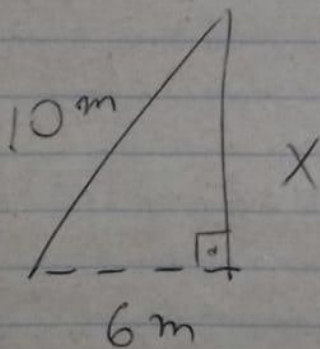 10 m
X
6 m